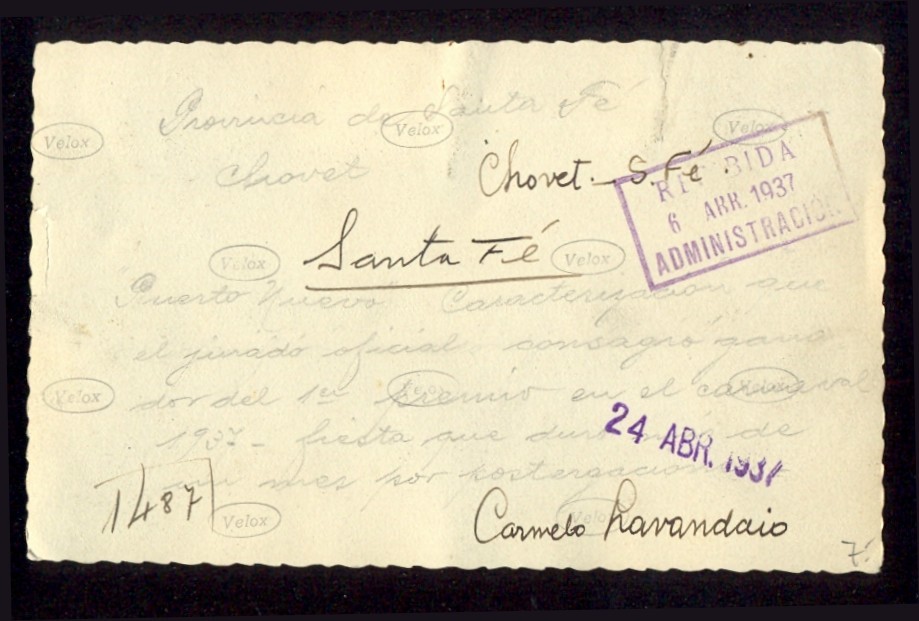 Provincia de Santa Fé
Velox
Velox
Velox
Chovet
Chovet. S. Fé.
RECIBIDA
6 ABR. 1937
ADMINISTRACIÓN
Santa Fé
Velox
Velox
Puerto Nuevo Caracterización que
el jurado oficial consagró gana-
dor del 1er premio en el carnaval
Velox
Velox
Velox
1937 - fiesta que duró más de
24 ABR. 1937
un mes por postergación
1487
Velox
Velox
Carmelo Lavandaio
7